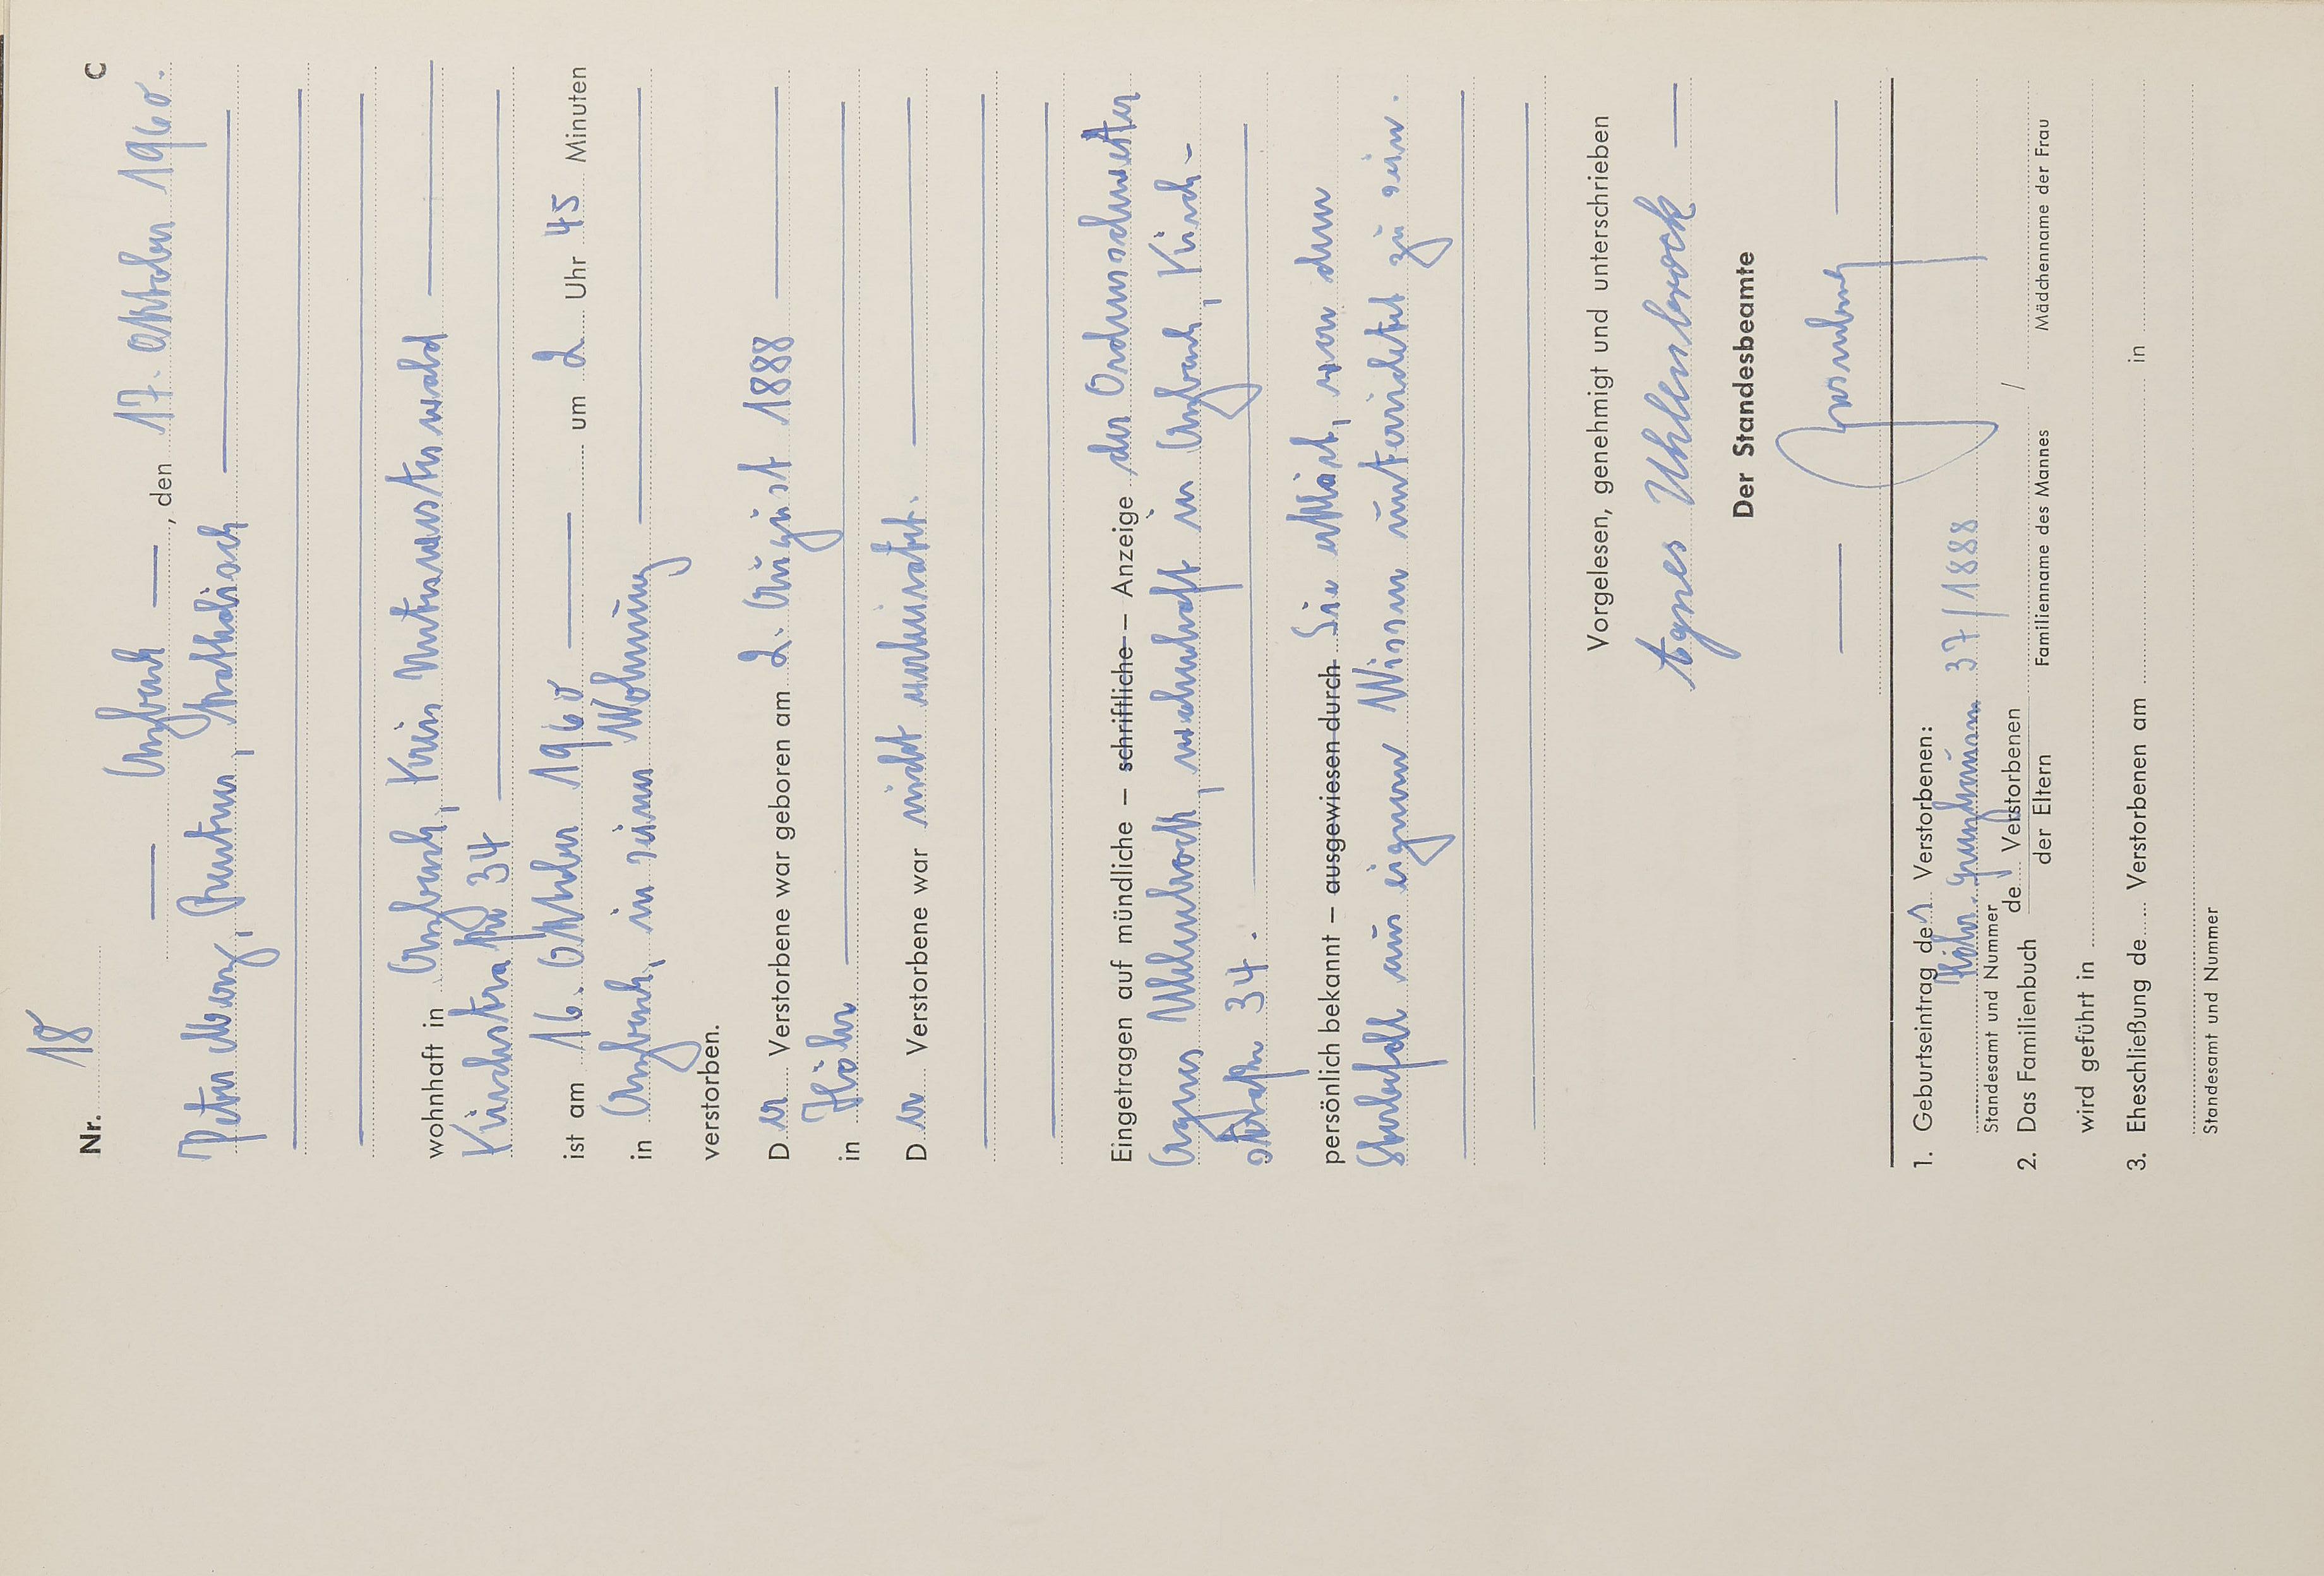 C
Nr. 18
Arzbach, den 17. Oktober 1960.
Peter Merz, Rentner, katholisch
wohnhaft in Arzbach, Kreis Unterwesterwald
Kirchstraße 34
ist am 16. Oktober 1960 um 2 Uhr 45 Minuten
in Arzbach, in seiner Wohnung
verstorben.
Der Verstorbene war geboren am 2. August 1888
in Höhr
Der Verstorbene war nicht verheiratet.
Eingetragen auf mündliche – schriftliche – Anzeige der Ordensschwester
Agnes Uhlenbrock, wohnhaft in Arzbach, Kirch-
straße 34.
persönlich bekannt – ausgewiesen durch Sie erklärt, von dem
Sterbefall aus eigenem Wissen unterrichtet zu sein.
Vorgelesen, genehmigt und unterschrieben
Agnes Uhlenbrock
Der Standesbeamte
1. Geburtseintrag des Verstorbenen:
Höhr-Grenzhausen 37/1888
Standesamt und Nummer
2. Das Familienbuch de Verstorbenen /
der Eltern Familienname des Mannes Mädchenname der Frau
wird geführt in
3. Eheschließung de Verstorbenen am in
Standesamt und Nummer